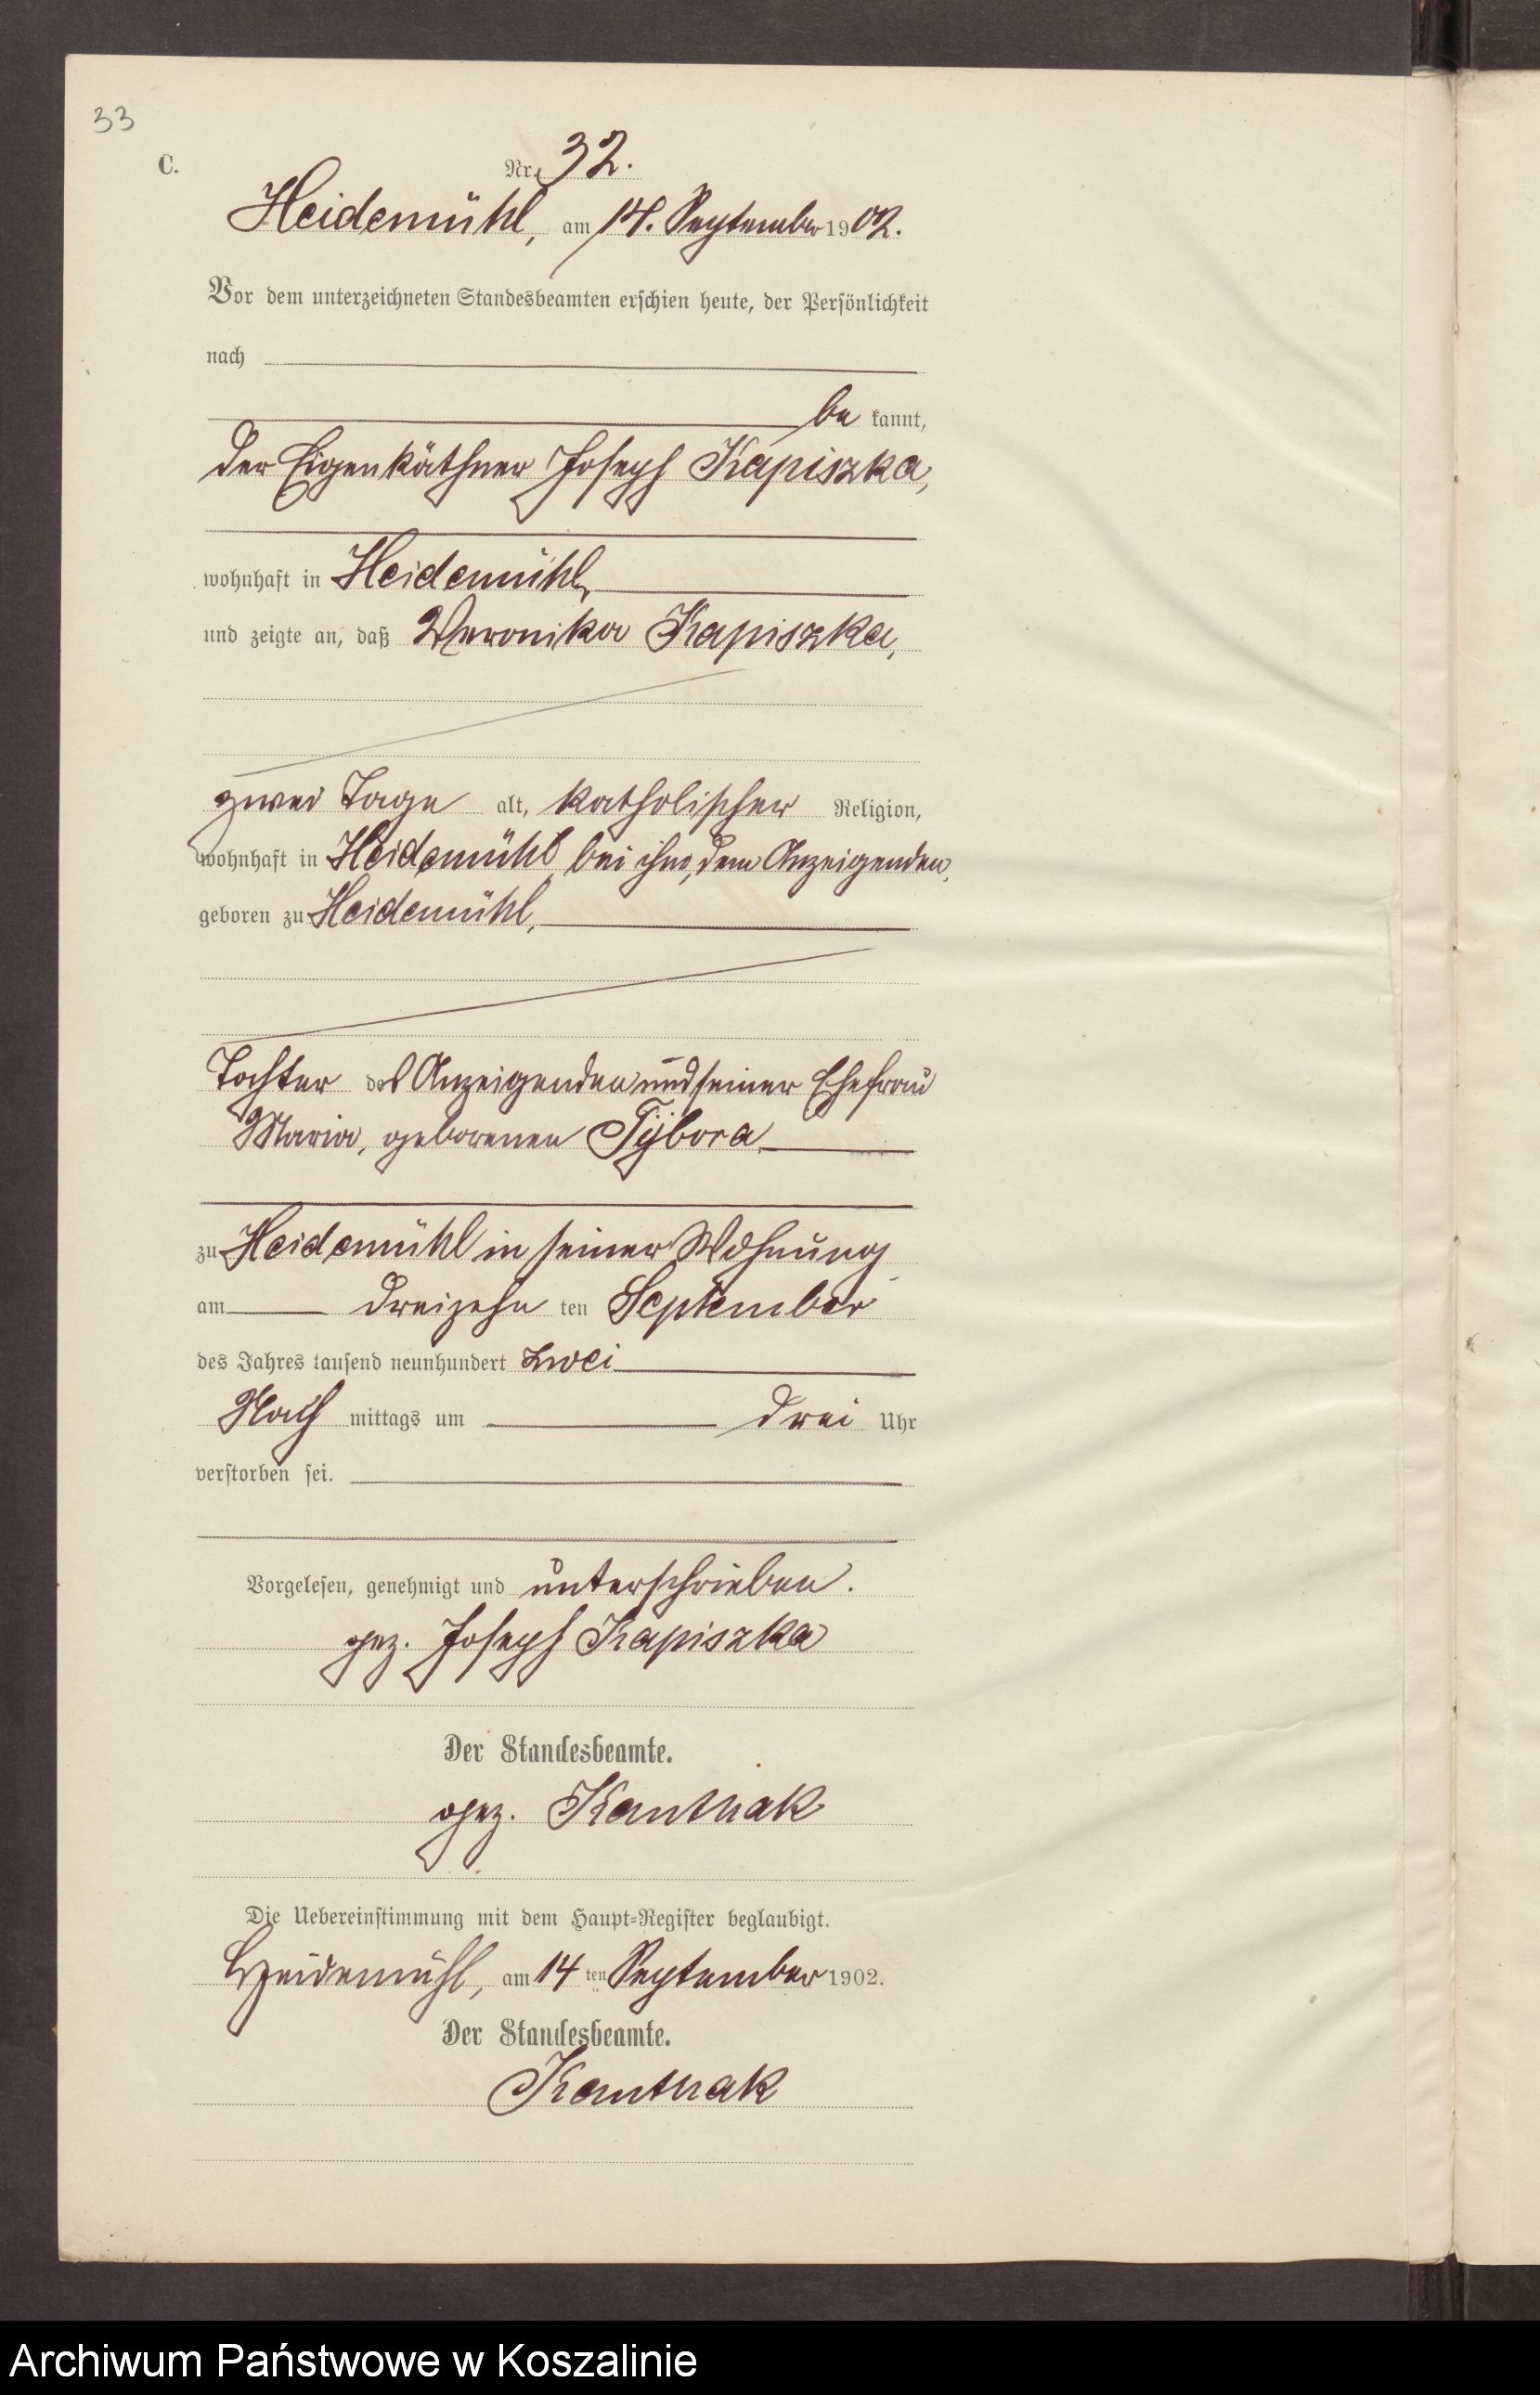 33
C.
Nr. 32.
Heidemühl, am 14. September 1902.
Vor dem unterzeichneten Standesbeamten erschien heute, der Persönlichkeit
nach
be kannt,
der Eigenkäthner Joseph Kapiszka,
wohnhaft in Heidemühl,
und zeigte an, daß Weronika Kapiszka,
zwei Tage alt, katholischer Religion,
wohnhaft in Heidemühl bei ihm, dem Anzeigenden,
geboren zu Heidemühl,
Tochter des Anzeigenden und seiner Ehefrau
Maria, geborenen Tÿbora
zu Heidemühl in seiner Wohnung
am dreizehn ten September
des Jahres tausend neunhundert zwei
Nach mittags um drei Uhr
verstorben sei.
Vorgelesen, genehmigt und unterschrieben.
gez. Joseph Kapiszka
Der Standesbeamte.
gez. Kantnak
Die Uebereinstimmung mit dem Haupt-Register beglaubigt.
Heidemühl, am 14 ten September 1902.
Der Standesbeamte.
Kantnak
Archiwum Państwowe w Koszalinie